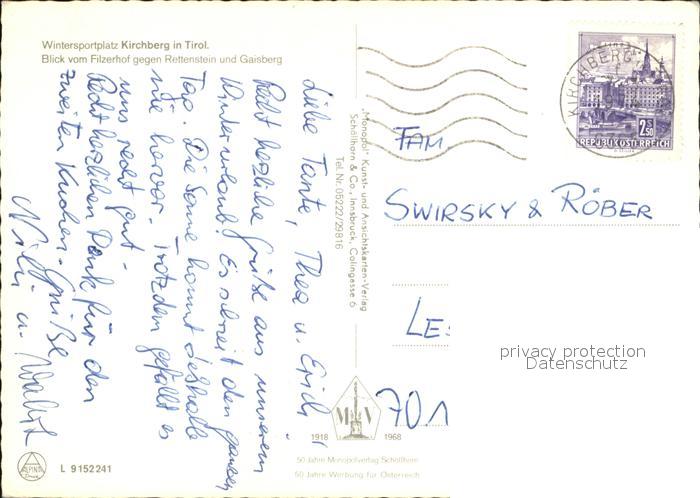 Wintersportplatz Kirchberg in Tirol.
Blick vom Filzerhof gegen Rettenstein und Gaisberg
Liebe Tante, Thea u. Erich!
Recht herzliche Grüße aus unserem
Winterurlaub! Es schneit den ganzen
Tag. Die Sonne kommt deshalb
nie hervor. Trotzdem gefällt es
uns recht gut.
Recht herzlichen Dank für den
zweiten Kuchen. Grüße
u. Walter
"Monopol" Kunst- und Ansichtskarten-Verlag
Schöllhorn & Co., Innsbruck, Colingasse 6
Tel. Nr. 05222/29816
KIRCHBERG
2.50
REPUBLIK ÖSTERREICH
FAM
SWIRSKY & RÖBER
LE:
701
privacy protection
Datenschutz
M V
1918 1968
50 Jahre Monopolverlag Schöllhorn
50 Jahre Werbung für Österreich
ALPINA
Druck
L 9152241